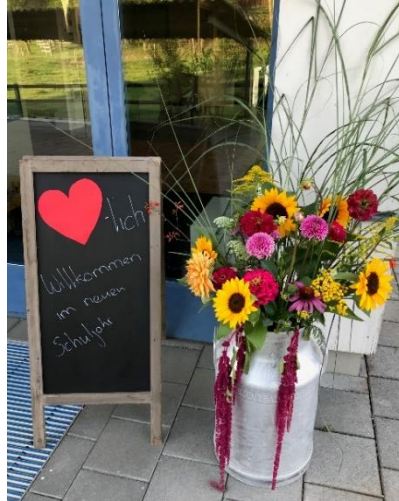 -lich
Willkommen
im neuen
Schuljahr